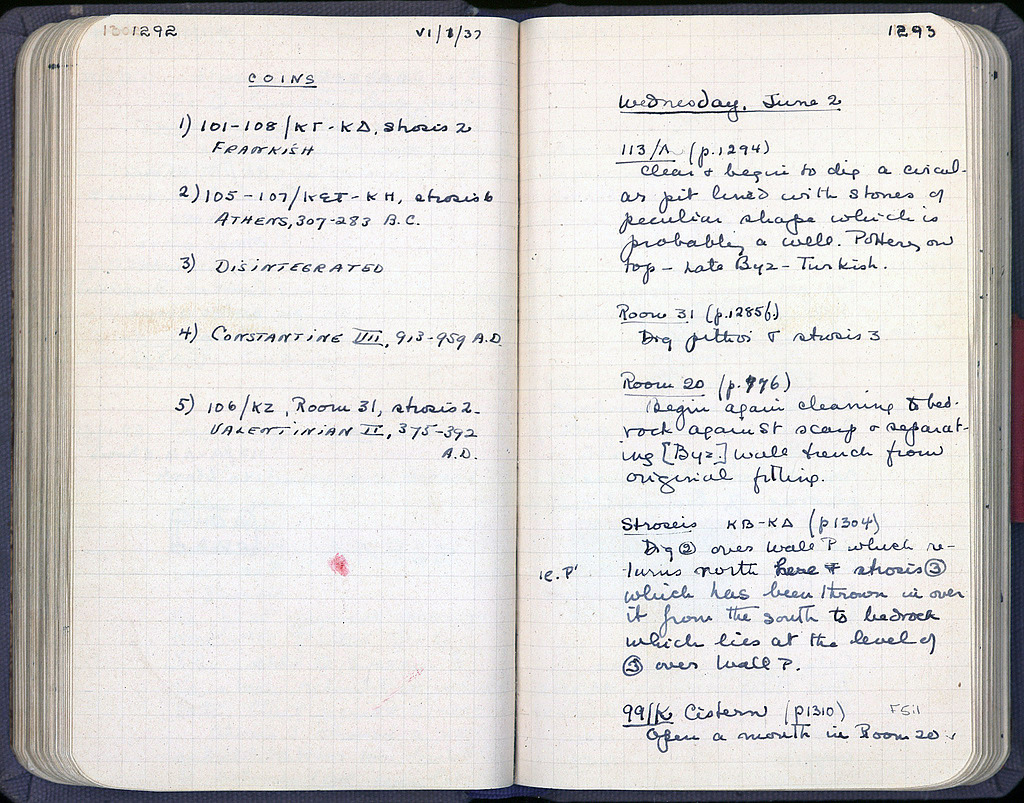 1292
VI/1/37
COINS
1) 101-108/ΚΓ-ΚΔ, strosis 2
FRANKISH
2) 105-107/ΚΣΤ-ΚΗ, strosis 6
ATHENS, 307-283 B.C.
3) DISINTEGRATED
4) CONSTANTINE VII, 913-959 A.D.
5) 106/ΚΖ, Room 31, strosis 2
VALENTINIAN II, 375-392
A.D.
1293
Wednesday, June 2
113/Λ (p.1294)
Clear & begin to dig a circul-
ar pit lined with stones of
peculiar shape which is
probably a well. Pottery on
top - Late Byz - Turkish.
Room 31 (p.1285f.)
Dig pithoi & strosis 3
Room 20 (p.776)
Begin again cleaning to bed-
rock against scarp & separat-
ing [Byz.] wall trench from
original filling.
Stroseis ΚΒ-ΚΔ (p1304)
Dig ② over wall P which re-
i.e. P'
turns north here & strosis ③
which has been thrown in over
it from the south to bedrock
which lies at the level of
③ over wall P.
99/Κ Cistern (p1310)
Open a mouth in Room 20.